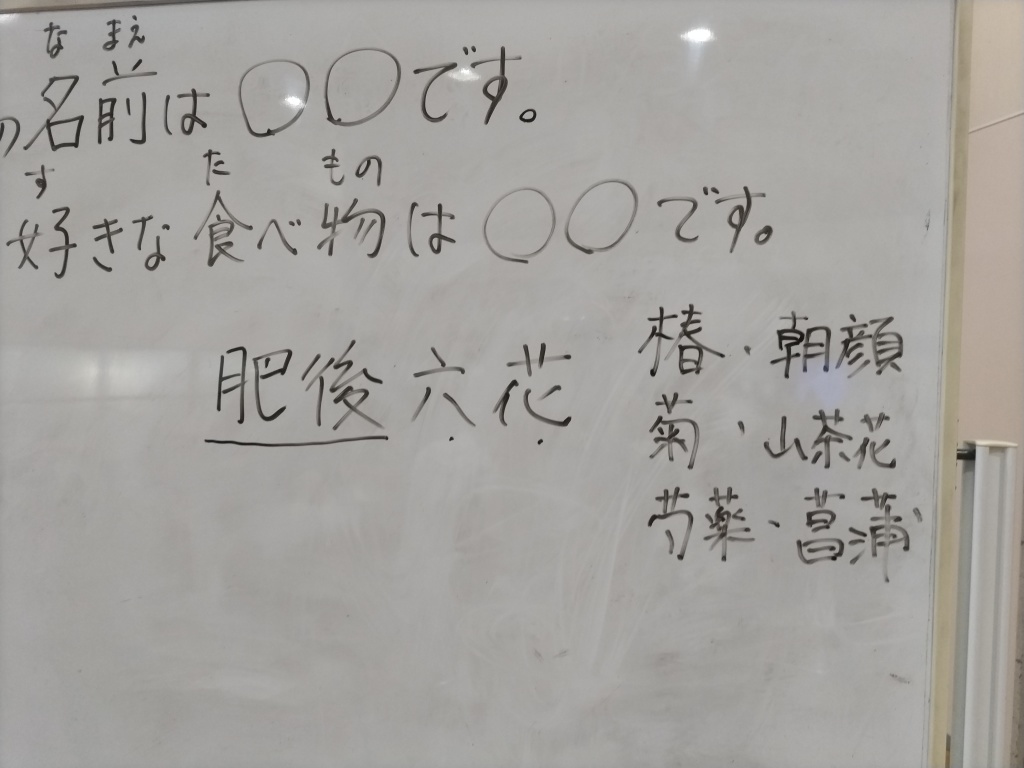 な まえ
の名前は〇〇です。
す た もの
好きな食べ物は〇〇です。
肥後六花
椿・朝顔
菊・山茶花
芍薬・菖蒲